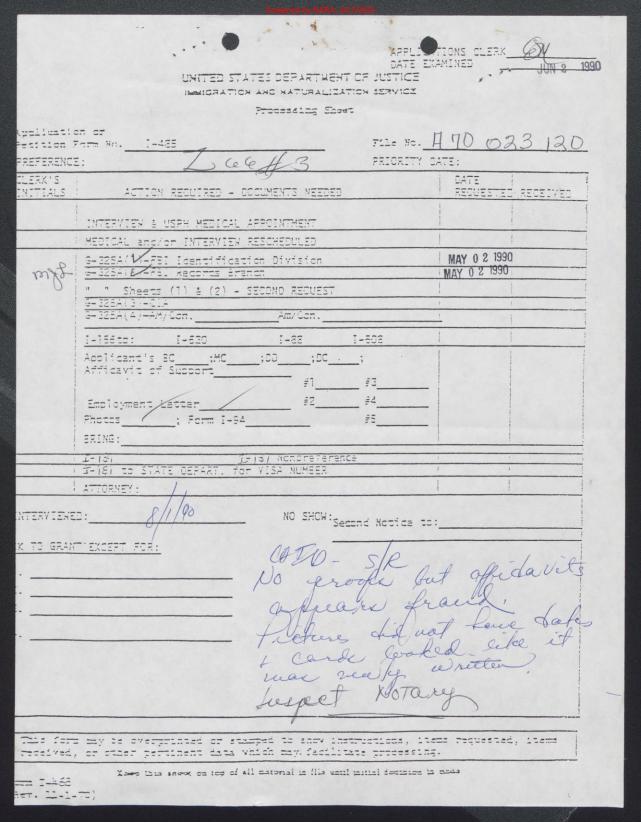 APPLICATIONS CLERK
DATE EXAMINED JUN 2 1990
UNITED STATES DEPARTMENT OF JUSTICE
IMMIGRATION AND NATURALIZATION SERVICE
Processing Sheet
Application or
Petition Form No. I-485 File No. A70 023 120
PREFERENCE: PRIORITY DATE:
CLERK'S
INITIALS ACTION REQUIRED - DOCUMENTS NEEDED DATE
REQUESTED RECEIVED
INTERVIEW & USPH MEDICAL APPOINTMENT
MEDICAL and/or INTERVIEW RESCHEDULED
G-325A FBI Identification Division MAY 02 1990
G-325A FBI Records Branch MAY 02 1990
" " Sheets (1) & (2) - SECOND REQUEST
G-325A(3)-CIA
G-325A(4)-Am/Con. Am/Con.
I-156to:
Applicant's BC ;MC ;DD ;DC ;
Affidavit of Support
#1 #3
Employment Letter #2 #4
Photos ; Form I-9A #5
BRING:
I-181 I-181 Nonpreference
I-181 to STATE DEPART. for VISA NUMBER
ATTORNEY:
INTERVIEWED: 8/1/90 NO SHOW: Second Notice to:
K TO GRANT EXCEPT FOR:
S/R
No proofs but affidavits
appears fraud.
Pictures did not have dates
& cards looked like it
was newly written.
Suspect Notary
This form may be overprinted or stamped to show instructions, items requested, items
received, or other pertinent data which may facilitate processing.
Keep this sheet on top of all material in file until initial decision is made
I-468